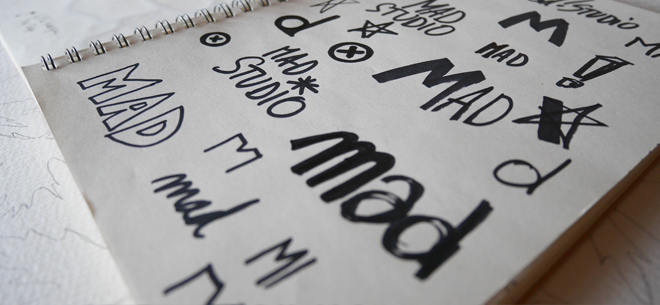 d
MAD
STUDIO
STUDIO
M
MAD
MAD
STUDIO
MAD
!
MAD
M
mad
d
mad
MI